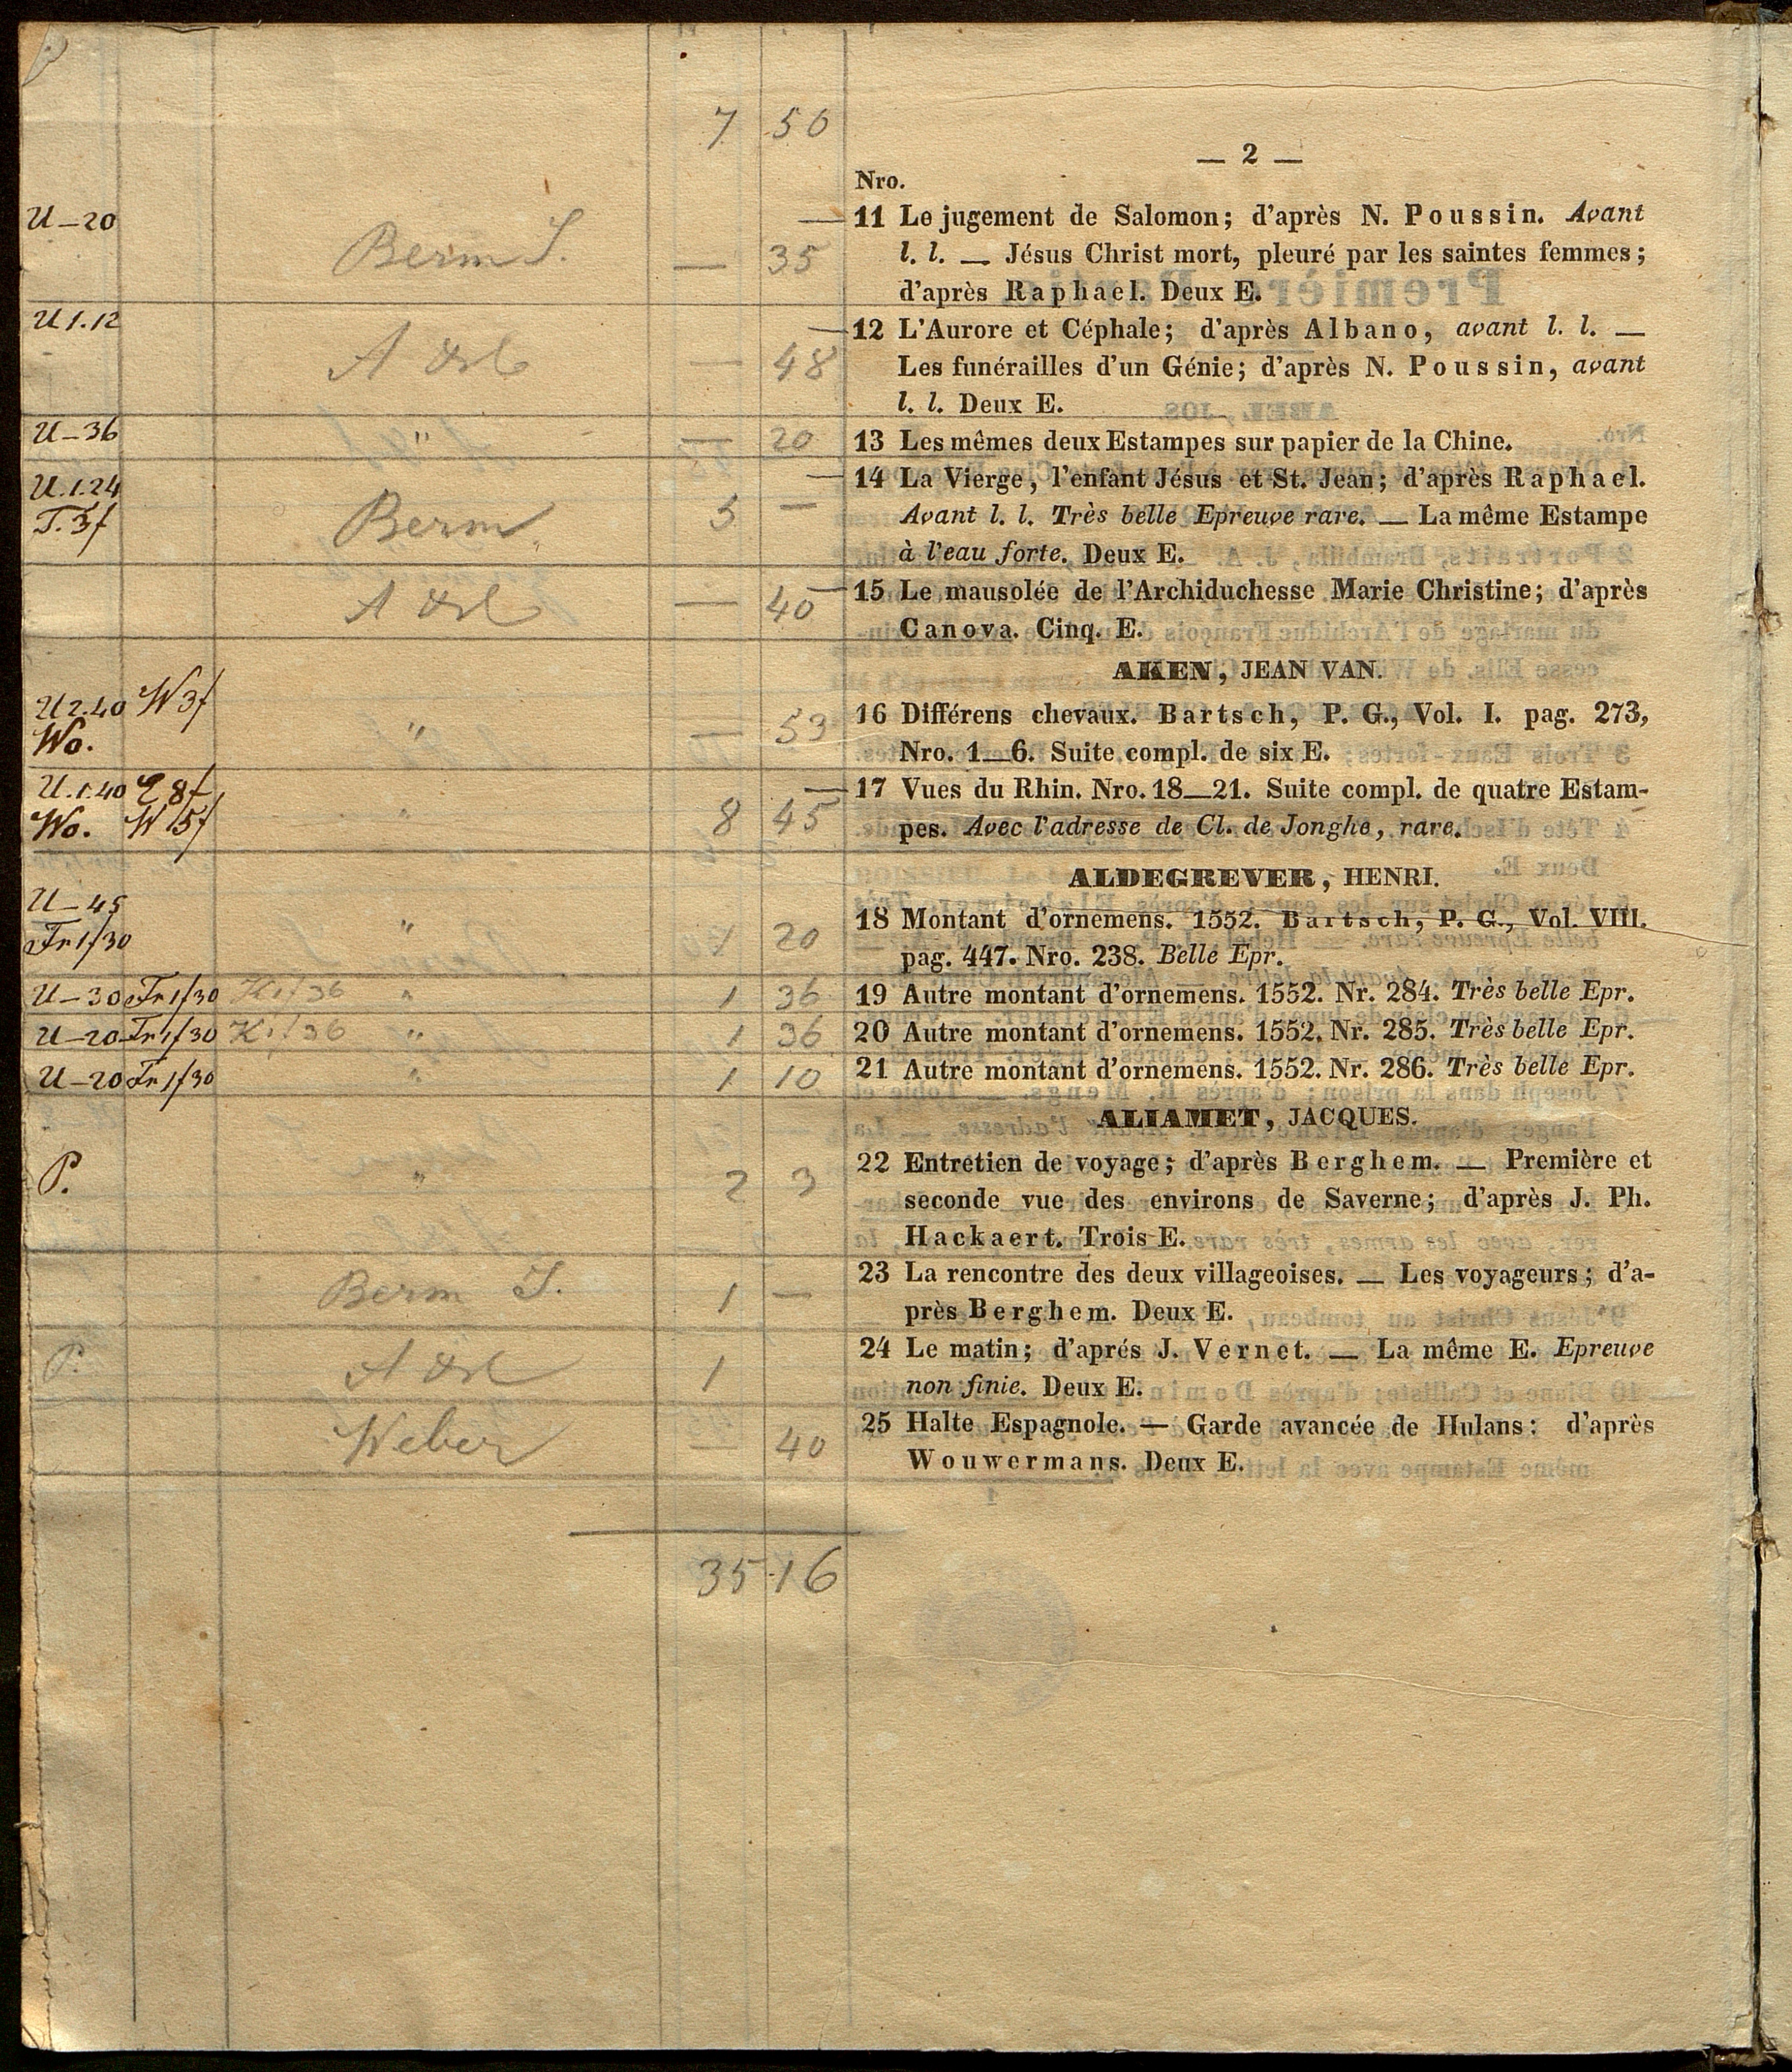 7 50
— 2 —
Nro.
U – 20
Berm S. — 35
11 Le jugement de Salomon; d'après N. Poussin. Avant
l. l. — Jésus Christ mort, pleuré par les saintes femmes;
d'après Raphael. Deux E.
U 1.12
— 48
12 L'Aurore et Céphale; d'après Albano, avant l. l. —
Les funérailles d'un Génie; d'après N. Poussin, avant
l. l. Deux E.
U – 36 " — 20 13 Les mêmes deux Estampes sur papier de la Chine.
U. 1.24
T. 3f Berm 5 —
14 La Vierge, l'enfant Jésus et St. Jean; d'après Raphael.
Avant l. l. Très belle Epreuve rare. — La même Estampe
à l'eau forte. Deux E.
— 40
15 Le mausolée de l'Archiduchesse Marie Christine; d'après
Canova. Cinq. E.
AKEN, JEAN VAN.
U 2.40 W 3f
Wo. " — 53
16 Différens chevaux. Bartsch, P. G., Vol. I. pag. 273,
Nro. 1—6. Suite compl. de six E.
U. 1.40 8f
Wo. W 15f " 8 45
17 Vues du Rhin. Nro. 18—21. Suite compl. de quatre Estam-
pes. Avec l'adresse de Cl. de Jonghe, rare.
ALDEGREVER, HENRI.
U – 45
Fr 1f30 " 1 20
18 Montant d'ornemens. 1552. Bartsch, P. G., Vol. VIII.
pag. 447. Nro. 238. Belle Epr.
U – 30 Fr 1f30 K 1f36 " 1 36 19 Autre montant d'ornemens. 1552. Nr. 284. Très belle Epr.
U – 20 Fr 1f30 K 1f36 " 1 36 20 Autre montant d'ornemens. 1552. Nr. 285. Très belle Epr.
U – 20 Fr 1f30 " 1 10 21 Autre montant d'ornemens. 1552. Nr. 286. Très belle Epr.
ALIAMET, JACQUES.
P. " 2 3
22 Entretien de voyage; d'après Berghem. — Première et
seconde vue des environs de Saverne; d'après J. Ph.
Hackaert. Trois E.
Berm S. 1 —
23 La rencontre des deux villageoises. — Les voyageurs; d'a-
près Berghem. Deux E.
P. 1
24 Le matin; d'aprés J. Vernet. — La même E. Epreuve
non finie. Deux E.
Weber — 40
25 Halte Espagnole. — Garde avancée de Hulans: d'après
Wouwermans. Deux E.
35 16